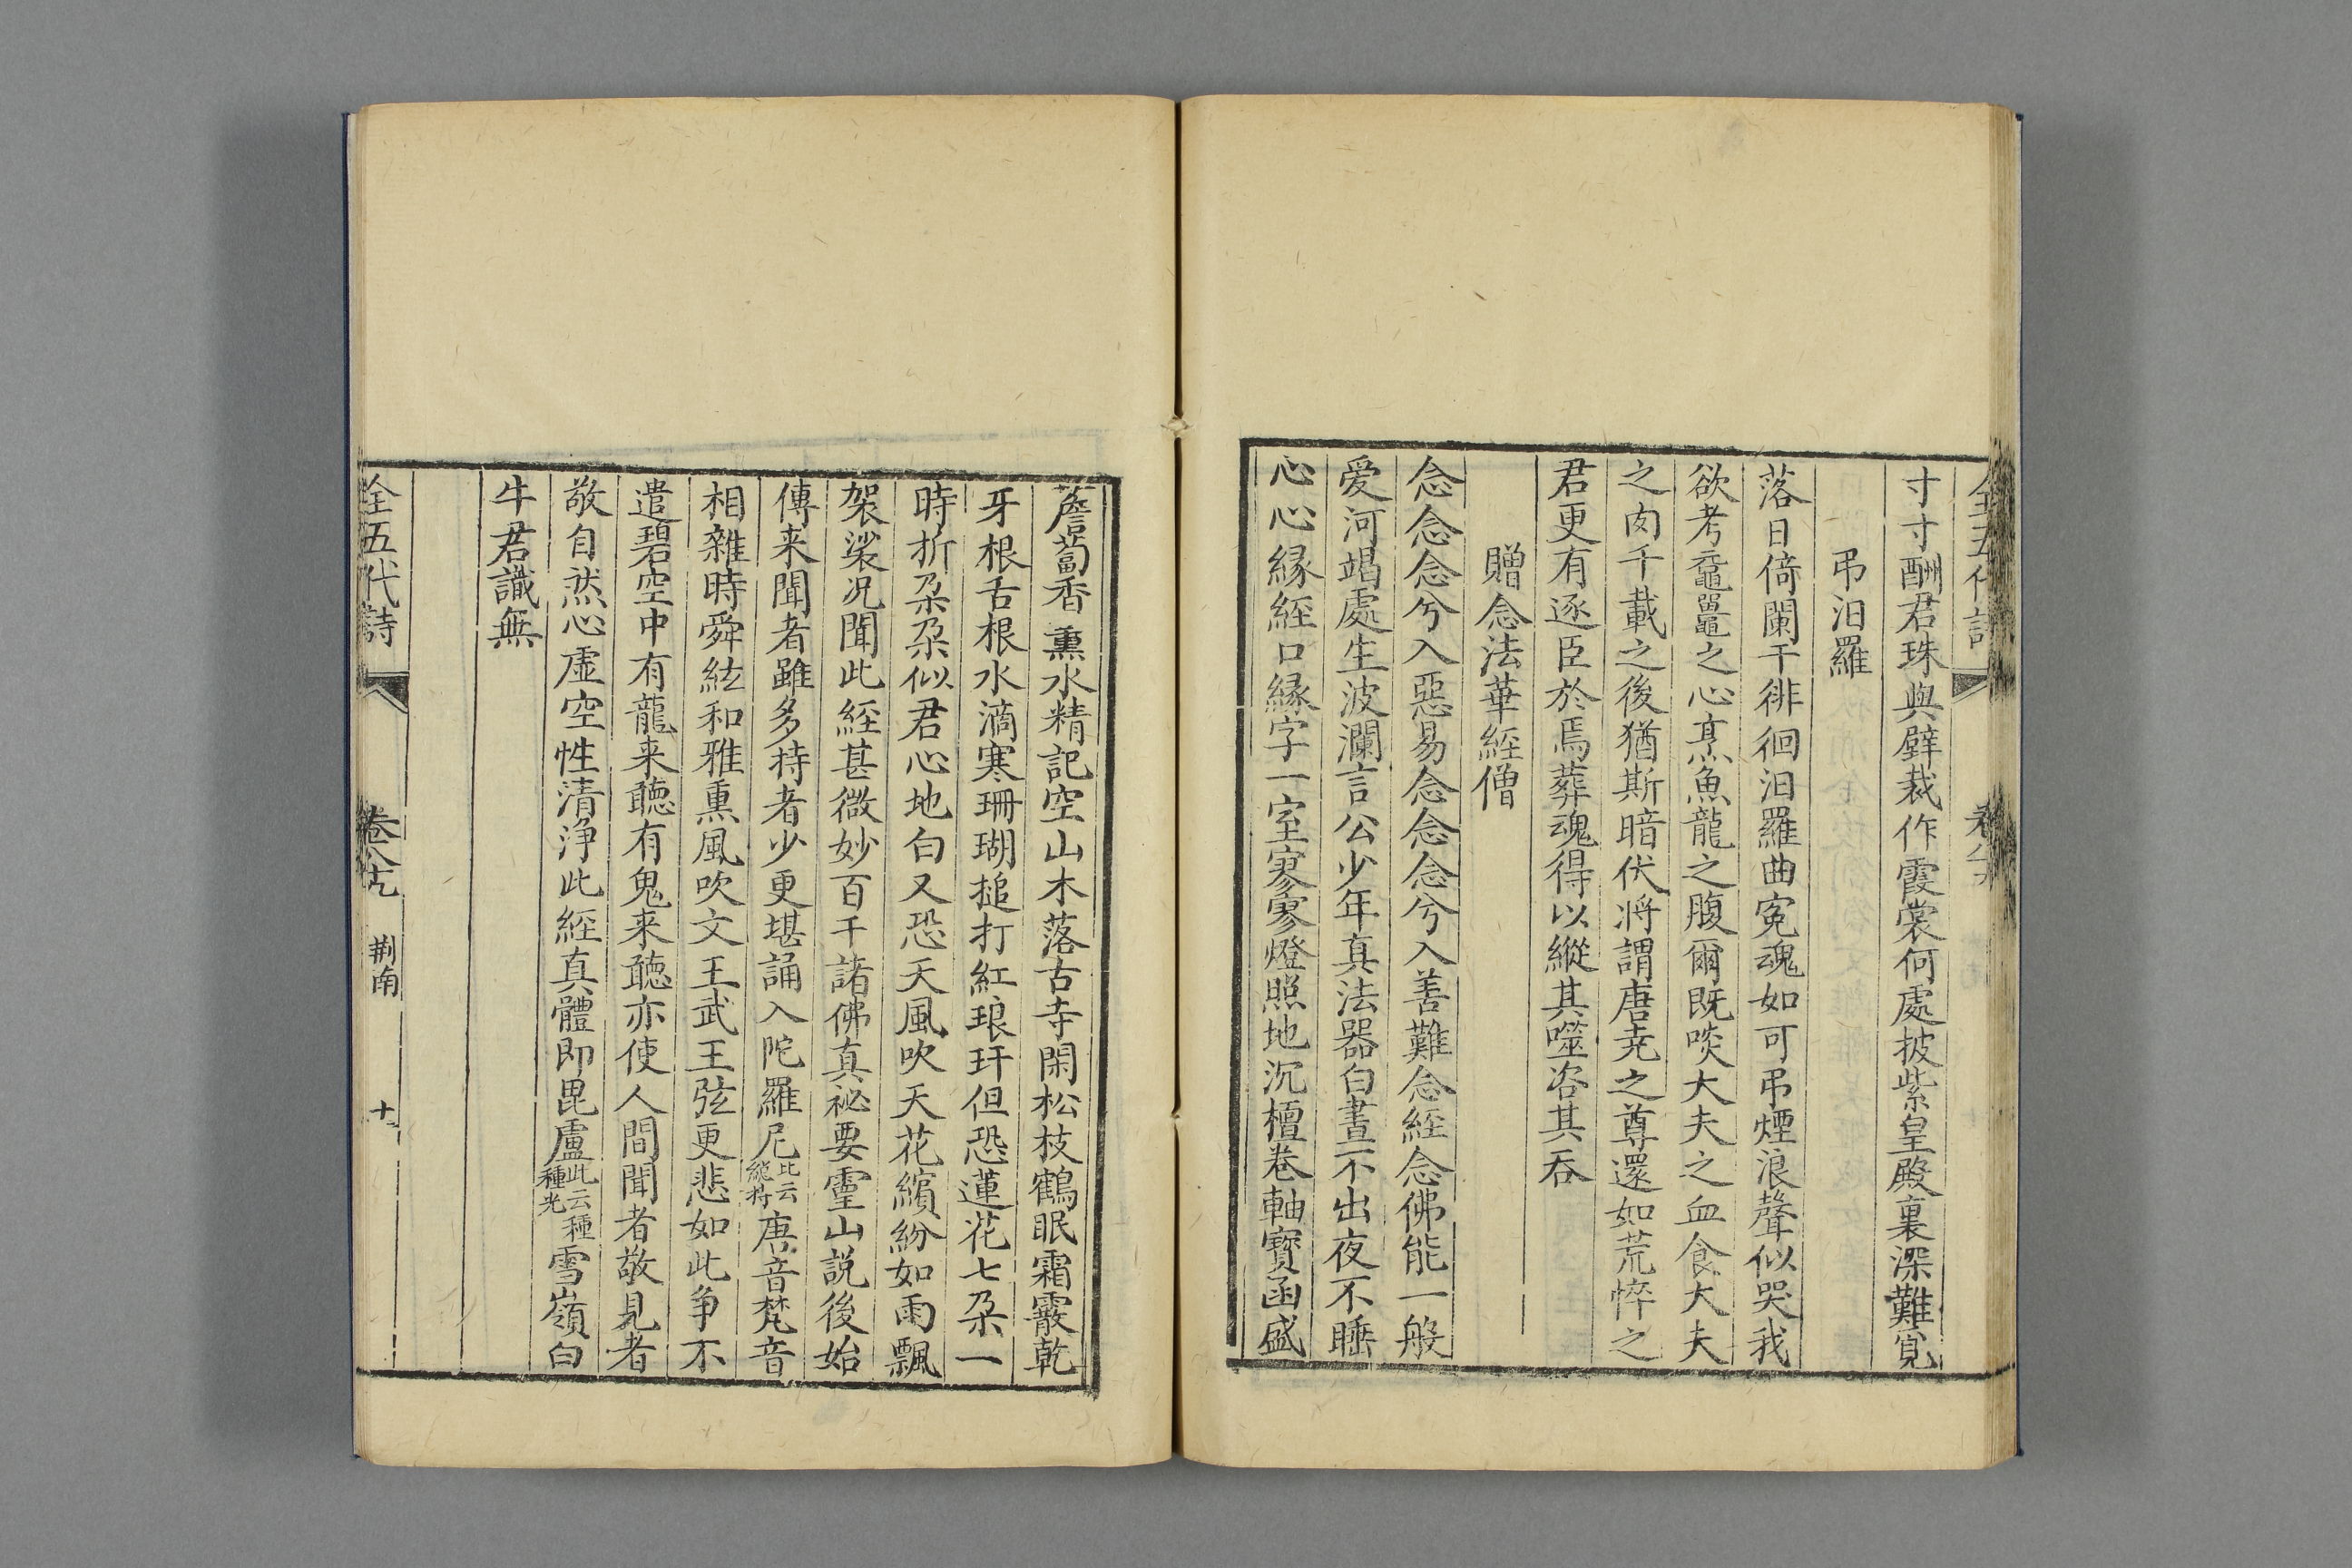 全五代詩
寸寸酬君珠與璧裁作霞裳何處披紫皇殿裏深難覓
弔汨羅
落日倚闌干徘徊汨羅曲寃魂如可弔煙浪聲似哭我
欲考黿鼉之心烹魚龍之腹爾既啖大夫之血食大夫
之肉千載之後猶斯暗伏将謂唐尭之尊還如荒悴之
君更有逐臣於焉葬魂得以縱其噬恣其吞
贈念法華經僧
念念念兮入惡易念念念兮入善難念經念佛能一般
愛河竭處生波瀾言公少年真法器白晝不出夜不睡
心心緣經口緣字一室寥寥燈照地沉檀卷軸寶函盛
薝蔔香熏水精記空山木落古寺閑松枝鶴眠霜霰乾
牙根舌根水滴寒珊瑚搥打紅琅玕但恐蓮花七朶一
時折朶朶似君心地白又恐天風吹天花繽紛如雨飄
袈裟况聞此經甚微妙百千諸佛真祕要靈山説後始
傳来聞者雖多持者少更堪誦入陀羅尼此云能持唐音梵音
相雜時舜絃和雅熏風吹文王武王弦更悲如此争不
遣碧空中有龍来聽有鬼来聽亦使人間聞者敬見者
敬自然心虛空性清淨此經真體即毘盧此云種種光雪嶺白
牛君識無
全五代詩
卷八十九
荆南
十